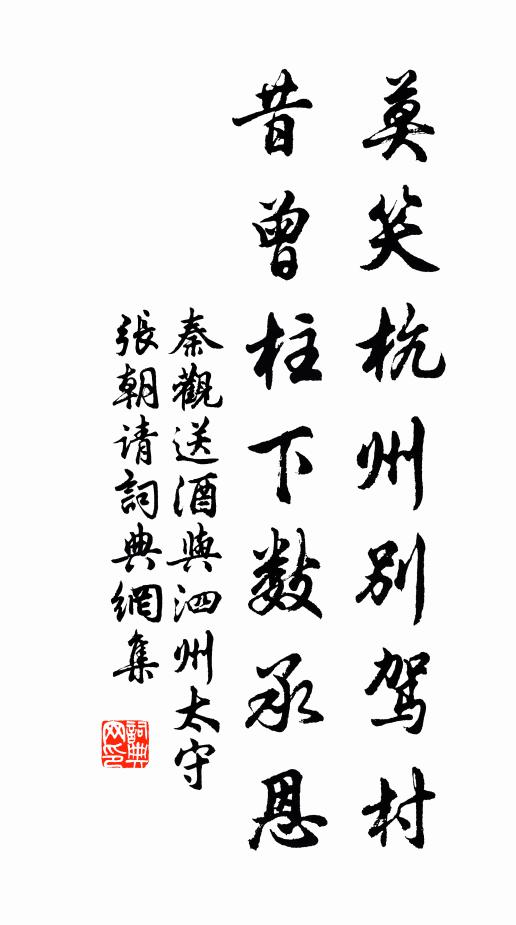 莫笑杭州別駕村
昔曾柱下數承恩
秦觀送酒與泗州太守
張朝请詞典網集
詞典网印